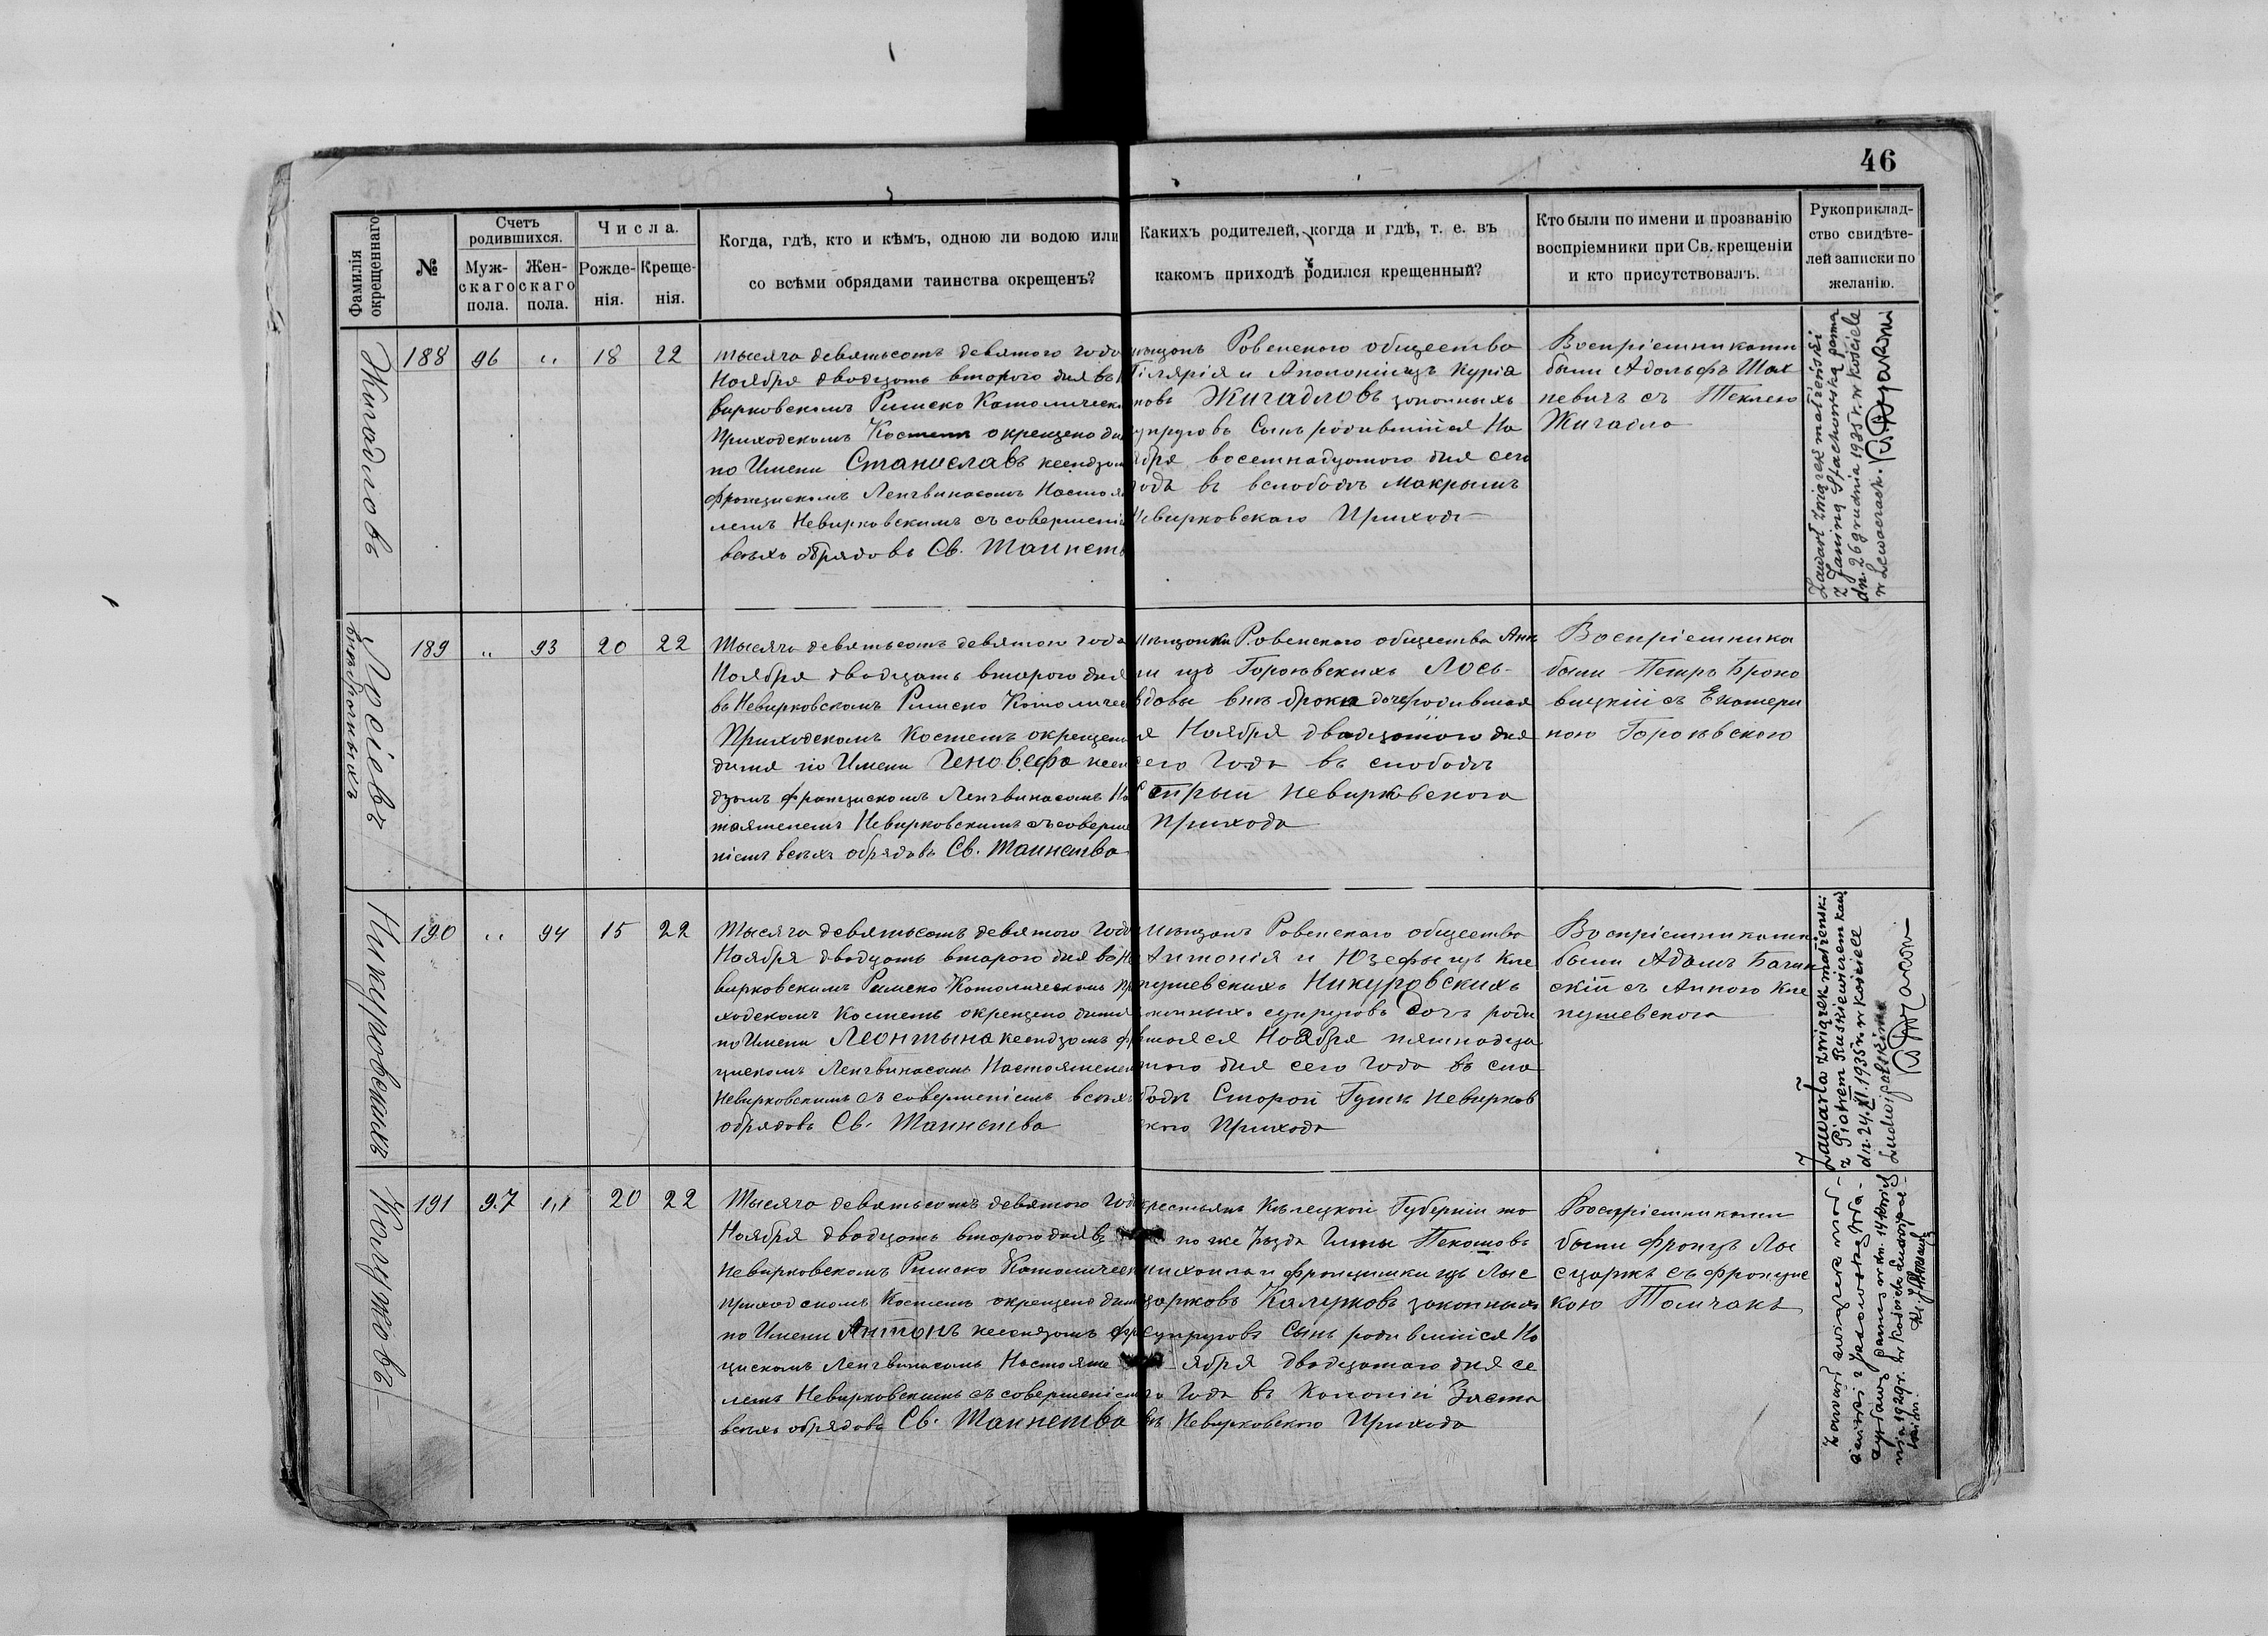 46
Фамилія окрещеннаго.
№
Счетъ родившихся.
Муж-
скаго
пола.
Жен-
скаго
пола.
Числа.
Рожде-
нія.
Креще-
нія.
Когда, гдѣ, кто и кѣмъ, одною ли водою или
со всѣми обрядами таинства окрещенъ?
Какихъ родителей, когда и гдѣ, т. е. въ
какомъ приходѣ родился крещенный?
Кто были по имени и прозванію
воспріемники при Св. крещеніи
и кто присутствовалъ.
Рукоприклад-
ство свидѣте-
лей записки по
желанію.
Жигадловъ
188 96 " 18 22
тысяча девятьсотъ девятого года
Ноября двадцать второго дня въ
вирковскомъ Римско Католическ
Приходскомъ Костелѣ окрещено ди
по Имени Станиславъ ксендзом
Францискомъ Ленгвинасомъ Настоя
лемъ Невирковскимъ съ совершені
всѣхъ обрядовъ Св. Таинств
мѣщанъ Ровенского общества
Гилярія и Аполоніи изъ Курія
новъ Жигадловъ законныхъ
супруговъ Сынъ родившійся Но
ября восемнадцатого дня сего
года въ вслободѣ Макрымъ
Невирковскаго Прихода
Воспріемниками
были Адольфъ Мах
невичъ съ Теклею
Жигадло
Zawarł związek małżeński
z Janiną Stachowską panną
dn. 26 grudnia 1935 r. w kościele
w Lewaczach.
Лосіевъ
внѣбрачныхъ
189 " 93 20 22
Тысяча девятьсотъ девятого года
Ноября двадцать второго дня
въ Невирковскомъ Римско Католичес
Приходскомъ Костелѣ окрещено
дитя по Имени Геновефа ксен
дзомъ Францискомъ Ленгвинасомъ На
тоятелемъ Невирковскимъ съ соверше
ніемъ всѣхъ обрядовъ Св. Таинства
мѣщанки Ровенского общества Анн
ы изъ Гороховскихъ Лось
вдовы внѣ брока дочь родившая
ся Ноября двадцатого дня
сего Года въ слободѣ
Невирковского
Прихода
Воспріемника
были Петръ Броно
вицкій съ Екатери
ною Гороховскою
Никуровскихъ
190 " 94 15 22
Тысяча девятьсотъ девятого Года
Ноября двадцать второго дня въ Не
вирковскимъ Римско Католическомъ Пр
ходскомъ Костелѣ окрещено дитя
по Имени Леонтына ксендзомъ Фр
цискомъ Ленгвинасомъ Настоятеле
Невирковскимъ съ совершеніемъ всѣхъ
обрядовъ Св. Таинства
мѣщанъ Ровенского общества
Антонія и Юзефы изъ Кле
пушевскихъ Никуровскихъ
законныхъ супруговъ Дочь роди
вшаяся Ноября пятнадца
таго дня сего Года въ сло
бодѣ Старой Гутѣ Невирков
ского Прихода
Воспріемниками
были Адамъ Бачин
скій съ Анною Кле
пушевского
Zawarła związek małżeński
z Piotrem Ruskiewiczem kaw.
dn. 24.XI.1935 r. w kościele
Ludwipolskim
Калужовъ
191 97 " 20 22
Тысяча девятьсотъ девятого Года
Ноября двадцать второго дня въ
Невирковскомъ Римско Католическ
приходскомъ Костелѣ окрещено дит
по Имени Антонъ ксендзомъ Фр
цискомъ Ленгвинасомъ Настояте
лемъ Невирковскимъ съ совершеніем
всѣхъ обрядовъ Св. Таинства
крестьянъ Кѣлецкой Губерніи то
го же Уѣзда Гмины Пекошовъ
Михаила и Францишки изъ Лыс
царжовъ Калужовъ законныхъ
супруговъ Сынъ родившійся Но
ября двадцатаго дня се
го Года въ Колоніи Заста
въ Невирковского Прихода
Воспріемниками
были Францъ Лы
сцаржъ съ Францис
кою Томчакъ
Zawarł związek mał-
żeński z
panną w dn. 14
nia 1929 r. w kościele